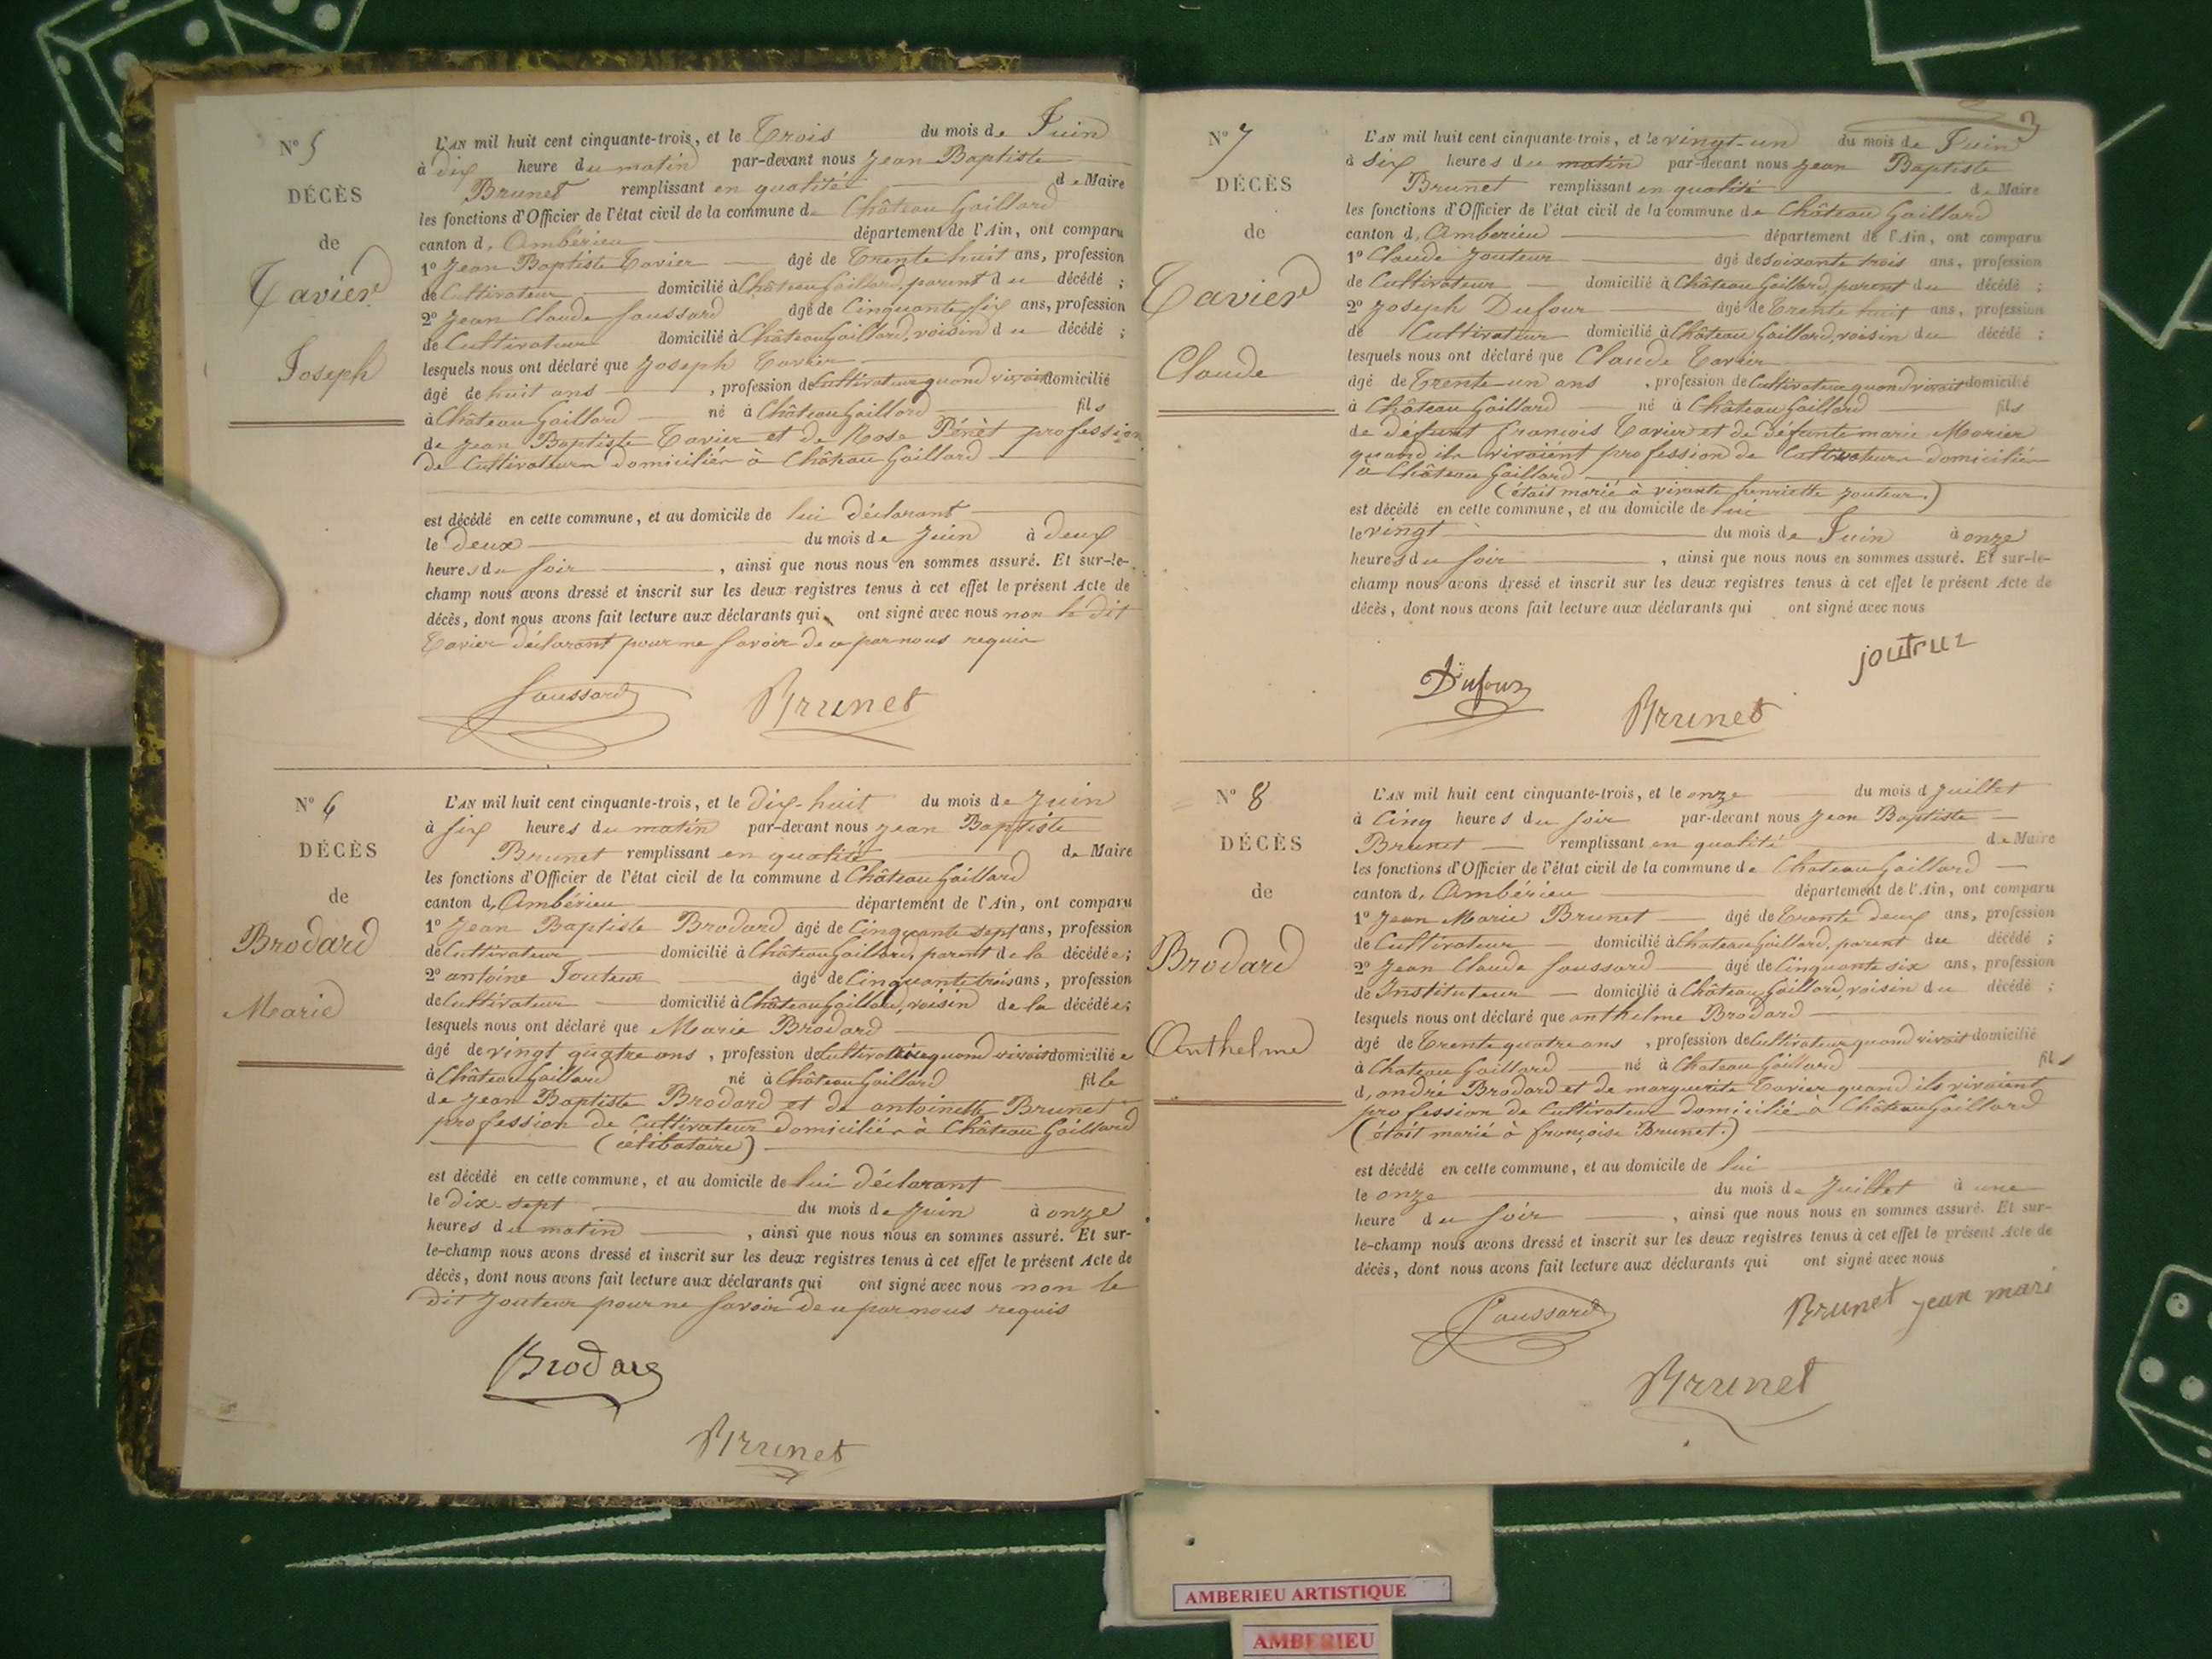 N° 5
DÉCÈS
de
Tavier
Joseph
L'AN mil huit cent cinquante-trois, et le Trois du mois de Juin
à dix heure du matin par-devant nous Jean Baptiste
Brunet remplissant en qualité de Maire
les fonctions d'Officier de l'état civil de la commune de Château Gaillard
canton d, Ambérieu département de l'Ain, ont comparu
1° Jean Baptiste Tavier âgé de Trente huit ans, profession
de Cultivateur domicilié à Château Gaillard, parent du décédé ;
2° Jean Claude Saussard âgé de Cinquante six ans, profession
de Cultivateur domicilié à Château Gaillard, voisin du décédé ;
lesquels nous ont déclaré que Joseph Tavier
âgé de huit ans , profession de Cultivateur quand vivait domicilié
à Château Gaillard né à Château Gaillard fils
de Jean Baptiste Tavier et de Rose Pénèt profession
de Cultivateurs domiciliés à Château Gaillard
est décédé en cette commune, et au domicile de lui déclarant
le deux du mois de Juin à deux
heures du soir , ainsi que nous nous en sommes assuré. Et sur-le-
champ nous avons dressé et inscrit sur les deux registres tenus à cet effet le présent Acte de
décès, dont nous avons fait lecture aux déclarants qui ont signé avec nous non le dit
Tavier déclarant pour ne savoir de ce par nous requis
Saussard Brunet
N° 6
DÉCÈS
de
Brodard
Marie
L'AN mil huit cent cinquante-trois, et le dix-huit du mois de Juin
à six heures du matin par-devant nous Jean Baptiste
Brunet remplissant en qualité de Maire
les fonctions d'Officier de l'état civil de la commune d Château Gaillard
canton d, Ambérieu département de l'Ain, ont comparu
1° Jean Baptiste Brodard âgé de Cinquante sept ans, profession
de Cultivateur domicilié à Château Gaillard, parent de la décédée ;
2° antoine Jouteur âgé de Cinquante trois ans, profession
de Cultivateur domicilié à Château Gaillard, voisin de la décédée ;
lesquels nous ont déclaré que Marie Brodard
âgé de vingt quatre ans , profession de Cultivatrice quand vivait domiciliée
à Château Gaillard né à Château Gaillard fille
de Jean Baptiste Brodard et de antoinette Brunet
profession de Cultivateurs domiciliés à Château Gaillard
(célibataire)
est décédé en cette commune, et au domicile de lui déclarant
le dix-sept du mois de Juin à onze
heures du matin , ainsi que nous nous en sommes assuré. Et sur-
le-champ nous avons dressé et inscrit sur les deux registres tenus à cet effet le présent Acte de
décès, dont nous avons fait lecture aux déclarants qui ont signé avec nous non le
dit Jouteur pour ne savoir de ce par nous requis
Brodard
Brunet
3
N° 7
DÉCÈS
de
Tavier
Claude
L'AN mil huit cent cinquante-trois, et le vingt-un du mois de Juin
à six heures du matin par-devant nous Jean Baptiste
Brunet remplissant en qualité de Maire
les fonctions d'Officier de l'état civil de la commune de Château Gaillard
canton d, Amberieu département de l'Ain, ont comparu
1° Claude Jouteur âgé de soixante trois ans, profession
de Cultivateur domicilié à Château Gaillard, parent du décédé ;
2° Joseph Dufour âgé de Trente huit ans, profession
de Cultivateur domicilié à Château Gaillard, voisin du décédé ;
lesquels nous ont déclaré que Claude Tavier
âgé de Trente-un ans , profession de Cultivateur quand vivait domicilié
à Château Gaillard né à Château Gaillard fils
de défunt françois Tavier et de défunte marie Morier
quand ils vivaient profession de Cultivateurs domiciliés
à Château Gaillard
(était marié à vivante henriette Jouteur.)
est décédé en cette commune, et au domicile de lui
le vingt du mois de Juin à onze
heures du soir , ainsi que nous nous en sommes assuré. Et sur-le-
champ nous avons dressé et inscrit sur les deux registres tenus à cet effet le présent Acte de
décès, dont nous avons fait lecture aux déclarants qui ont signé avec nous
jouteur
Dufour
Brunet
N° 8
DÉCÈS
de
Brodard
Anthelme
L'AN mil huit cent cinquante-trois, et le onze du mois d Juillet
à Cinq heures du soir par-devant nous Jean Baptiste
Brunet remplissant en qualité de Maire
les fonctions d'Officier de l'état civil de la commune de Chateau Gaillard
canton d, Ambérieu département de l'Ain, ont comparu
1° Jean Marie Brunet âgé de Trente deux ans, profession
de Cultivateur domicilié à Chateau Gaillard, parent du décédé ;
2° Jean Claude Saussard âgé de Cinquante six ans, profession
de Instituteur domicilié à Château Gaillard, voisin du décédé ;
lesquels nous ont déclaré que anthelme Brodard
âgé de Trente quatre ans , profession de Cultivateur quand vivait domicilié
à Chateau Gaillard né à Chateau Gaillard fils
d, andré Brodard et de marguerite Tavier quand ils vivaient
profession de Cultivateur domicilié à Château Gaillard
(était marié à françoise Brunet.)
est décédé en cette commune, et au domicile de lui
le onze du mois de Juillet à une
heure du soir , ainsi que nous nous en sommes assuré. Et sur-
le-champ nous avons dressé et inscrit sur les deux registres tenus à cet effet le présent Acte de
décès, dont nous avons fait lecture aux déclarants qui ont signé avec nous
Saussard Brunet jean mari
Brunet
AMBERIEU ARTISTIQUE
AMBERIEU